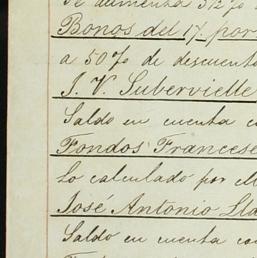 se aumenta 312% 
Bonos del 1% por
a 50% de descuento
J. V. Subervielle
Saldo en cuenta co
Fondos Frances
Lo calculado por M
José Antonio Lla
Saldo en cuenta co